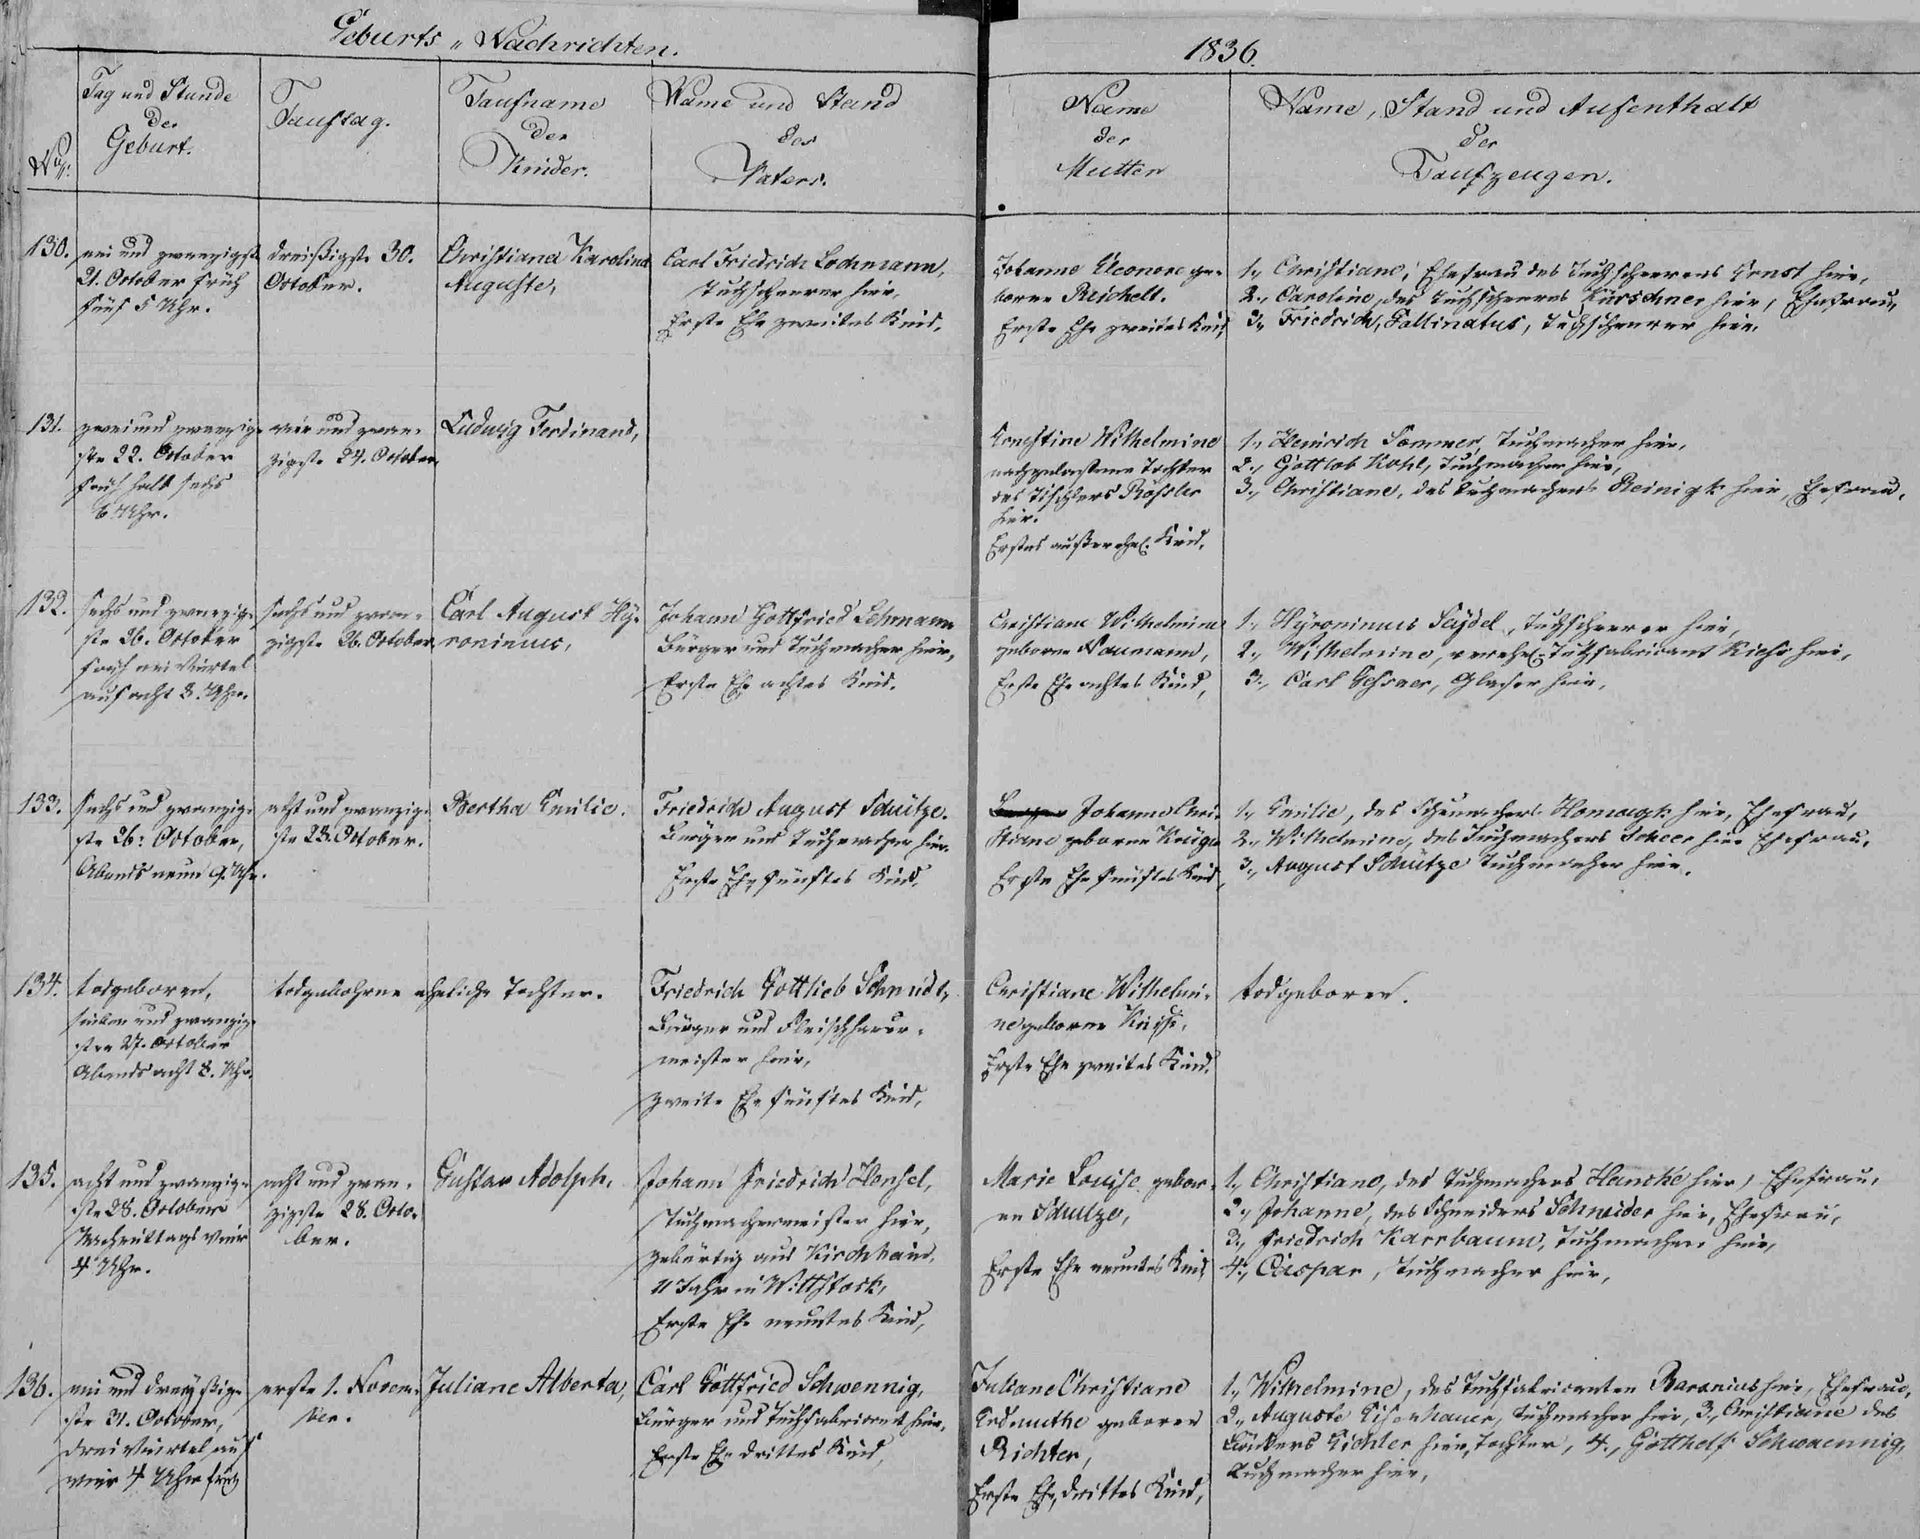 Geburts „ Nachrichten.
1836.
No.
Tag und Stunde
der
Geburt.
Tauftag.
Taufname
der
Kinder.
Name und Stand
des
Vaters.
Name
der
Mutter
Name, Stand und Aufenthalt
der
Taufzeugen.
130.
ein und zwanzigste
21. October früh
fünf 5 Uhr.
dreißigste 30.
October.
Christiana Karolina
Auguste,
Carl Friedrich Lochmann,
Tuchscheerer hier,
Erste Ehe zweites Kind,
Johanne Eleonore ge-
borne Reichelt.
Erste Ehe zweites Kind,
1., Christiane, Ehefrau des Tuchscheerers Ernst hier,
2., Caroline, des Tuchscheerers Kürschner hier, Ehefrau,
3., Friedrich, Tuchscheerer hier.
131.
zwei und zwanzig-
ste 22. October
früh halb sechs
6 Uhr.
vier und zwan-
zigste 24. October,
Ludwig Ferdinand,
Ernestine Wilhelmine
nachgelassene Tochter
des Tischlers Rossler
hier.
Erstes außerehel. Kind,
1., Heinrich Sommer, Tuchmacher hier,
2., Gottlob Kohl, Tuchmacher hier,
3., Christiane, des Tuchmachers Reinigk hier, Ehefrau,
132.
sechs und zwanzig-
ste 26. October
früh ein Viertel
auf acht 8. Uhr.
sechs und zwan-
zigste 26. October
Carl August Hÿ-
ronimus,
Johann Gottfried Lehmann
Bürger und Tuchmacher hier,
Erste Ehe achtes Kind.
Christiane Wilhelmine
geborne Naumann,
Erste Ehe achtes Kind,
1., Hÿronimus Seÿdel, Tuchscheerer hier,
2., Wilhelmine, verehel. Tuchfabricant hier,
3., Carl, Glaser hier,
133.
sechs und zwanzig-
ste 26: October,
Abends neun 9. Uhr.
acht und zwanzig-
ste 28. October.
Bertha Emilie.
Friedrich August Schütze.
Bürger und Tuchmacher hier.
Erste Ehe fünftes Kind,
Johanne Chri-
stiane geborne Krüger
Erste Ehe fünftes Kind,
1., Emilie, des Homagk hier, Ehefrau,
2., Wilhelmine, des Tuchmachers Scheer hier Ehefrau,
3., August Schütze Tuchmacher hier.
134.
todgeboren,
sieben und zwanzig-
sten 27. October
Abends acht 8. Uhr.
todgebohrne eheliche Tochter.
Friedrich Gottlieb Schmidt,
Bürger und Fleischhauer-
meister hier,
zweite Ehe fünftes Kind,
Christiane Wilhelmi-
ne geborne
Erste Ehe zweites Kind.
todgeboren.
135.
acht und zwanzig-
ste 28. October
Nachmittags vier
4 Uhr.
acht und zwan-
zigste 28. Octo-
ber.
Gustav Adolph,
Johann Friedrich Hensel,
Tuchmachermeister hier,
gebürtig aus Kirchhain,
11 Jahr in Wittstock,
Erste Ehe neuntes Kind,
Marie Louise gebor-
ne Schultze,
Erste Ehe neuntes Kind
1., Christiane, des Tuchmachers Hancke hier, Ehefrau,
2., Johanne, des Schneiders Schneider hier, Ehefrau,
3., Friedrich Karrbaum, Tuchmacher hier,
4., Caspar, Tuchmacher hier,
136.
ein und dreyßig-
ste 31. October,
drei Viertel auf
vier 4 Uhr früh
erste 1. Novem-
ber.
Juliane Alberta,
Carl Gottfried Schwennig,
Bürger und Tuchfabricant hier,
Erste Ehe drittes Kind,
Juliane Christiane
Erdmuthe geborne
Richter,
Erste Ehe, drittes Kind,
1., Wilhelmine, des Tuchfabricanten Baranius hier, Ehefrau,
2., Auguste Eisenhauer, Tuchmacher hier, 3., Christiane des
Bäckers Richter hier, Tochter, 4., Gotthelf Schwaennig,
Tuchmacher hier,